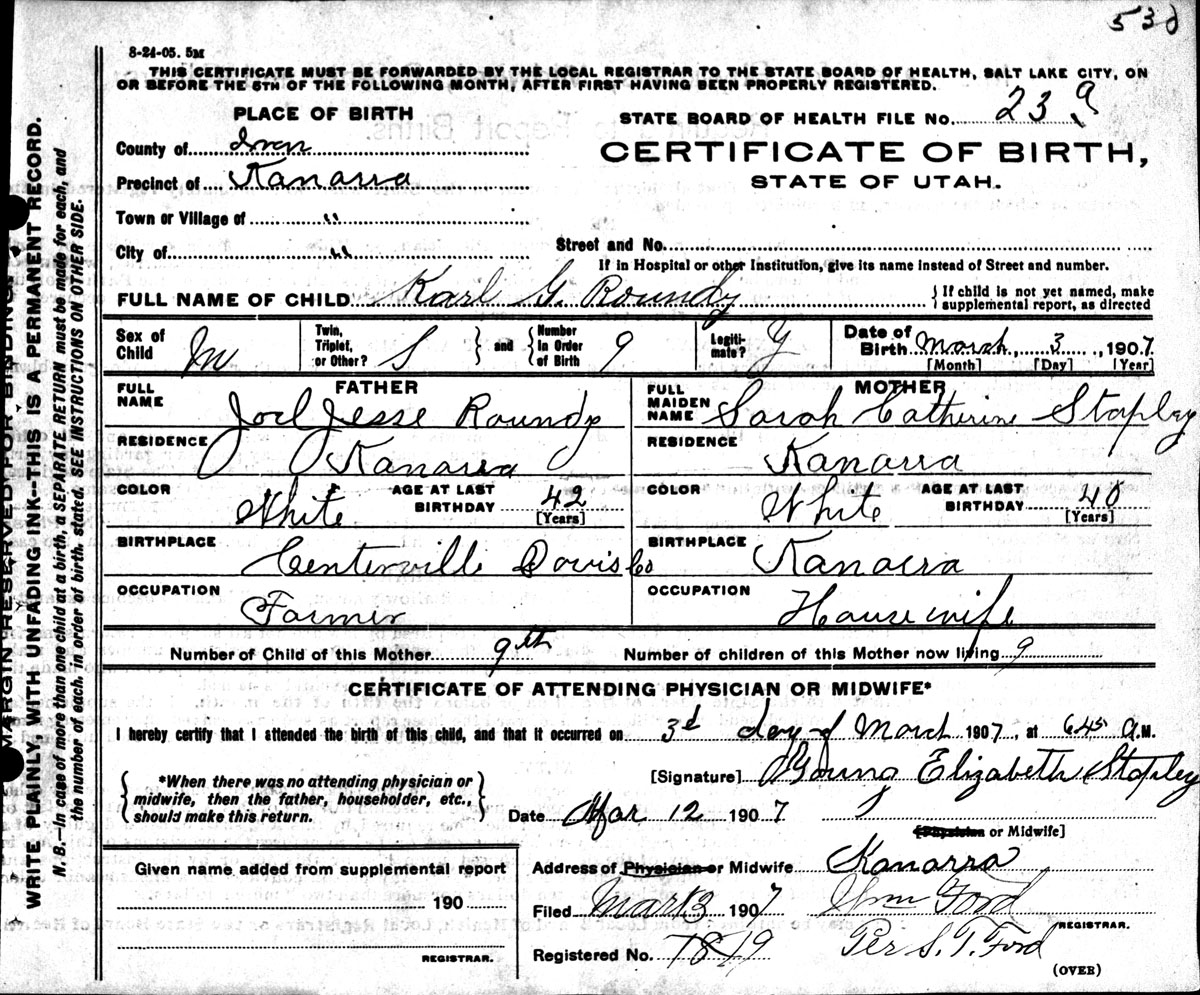 530
8-24-05. 5M
THIS CERTIFICATE MUST BE FORWARDED BY THE LOCAL REGISTRAR TO THE STATE BOARD OF HEALTH, SALT LAKE CITY, ON
OR BEFORE THE 5TH OF THE FOLLOWING MONTH, AFTER FIRST HAVING BEEN PROPERLY REGISTERED.
PLACE OF BIRTH
STATE BOARD OF HEALTH FILE NO. 23 9
County of Iron
CERTIFICATE OF BIRTH,
STATE OF UTAH.
Precinct of Kanarra
Town or Village of "
City of "
Street and No.
If in Hospital or other Institution, give its name instead of Street and number.
FULL NAME OF CHILD Karl G. Roundy
{ If child is not yet named, make
supplemental report, as directed
Sex of Child M
Twin, Triplet, or Other? S } and { Number In Order of Birth 9
Legiti-mate? Y
Date of Birth March, 3, 1907
[Month] [Day] [Year]
FATHER
FULL NAME Joel Jesse Roundy
RESIDENCE Kanarra
COLOR White AGE AT LAST BIRTHDAY 42 [Years]
BIRTHPLACE Centerville Davis Co
OCCUPATION Farmer
MOTHER
FULL MAIDEN NAME Sarah Catherine Stapley
RESIDENCE Kanarra
COLOR White AGE AT LAST BIRTHDAY 40 [Years]
BIRTHPLACE Kanarra
OCCUPATION House wife
Number of Child of this Mother 9th Number of children of this Mother now living 9
CERTIFICATE OF ATTENDING PHYSICIAN OR MIDWIFE*
I hereby certify that I attended the birth of this child, and that it occurred on 3d day of March 1907, at 6 45 A.M.
{ *When there was no attending physician or
midwife, then the father, householder, etc.,
should make this return. }
[Signature] Young Elizabeth Stapley
Date Mar 12 1907
[Physician or Midwife]
Address of Physician or Midwife Kanarra
Given name added from supplemental report
190
REGISTRAR.
Filed Mar 13 1907 Wm Ford
REGISTRAR.
Registered No. 7819 Per S. T. Ford
(OVER)
MARGIN RESERVED FOR BINDING.
WRITE PLAINLY, WITH UNFADING INK--THIS IS A PERMANENT RECORD.
N. B.—In case of more than one child at a birth, a SEPARATE RETURN must be made for each, and
the number of each, in order of birth, stated. SEE INSTRUCTIONS ON OTHER SIDE.